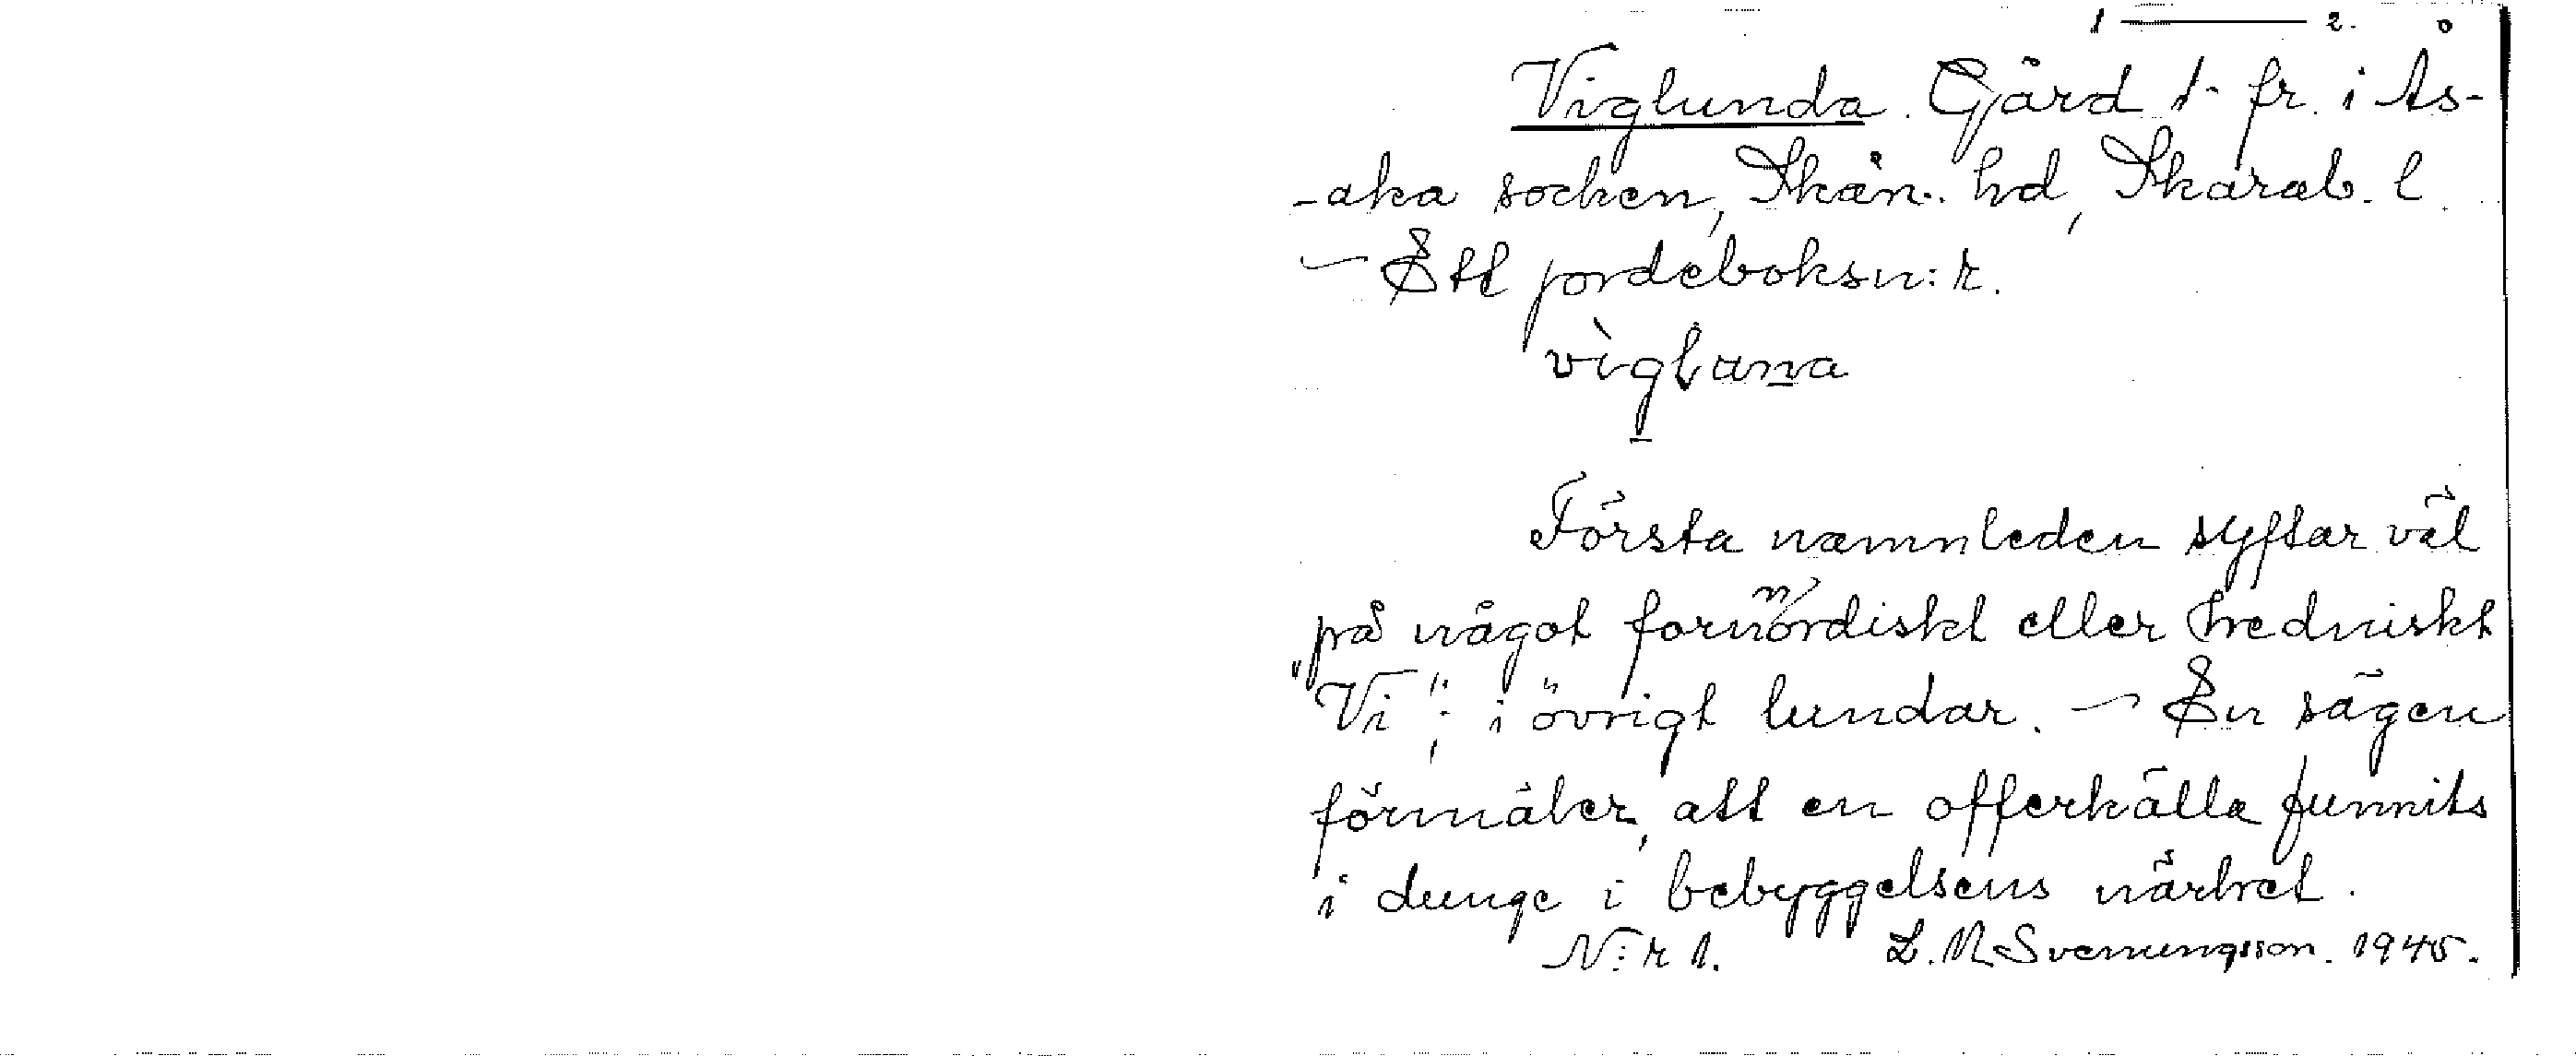 1 — 2.
Viglunda. Gård 1 fr. i Ås-
-aka socken, Skån. hd, Skarab. l.
— Ett jordeboksn:r.
vìgluna
Första namnleden syftar väl
på något fornnordiskt eller hedniskt
"Vi"; i övrigt lundar. — En sägen
förmäler, att en offerkälla funnits
i dunge i bebyggelsens närhet.
N:r 1. L. N Svenungsson. 1945.